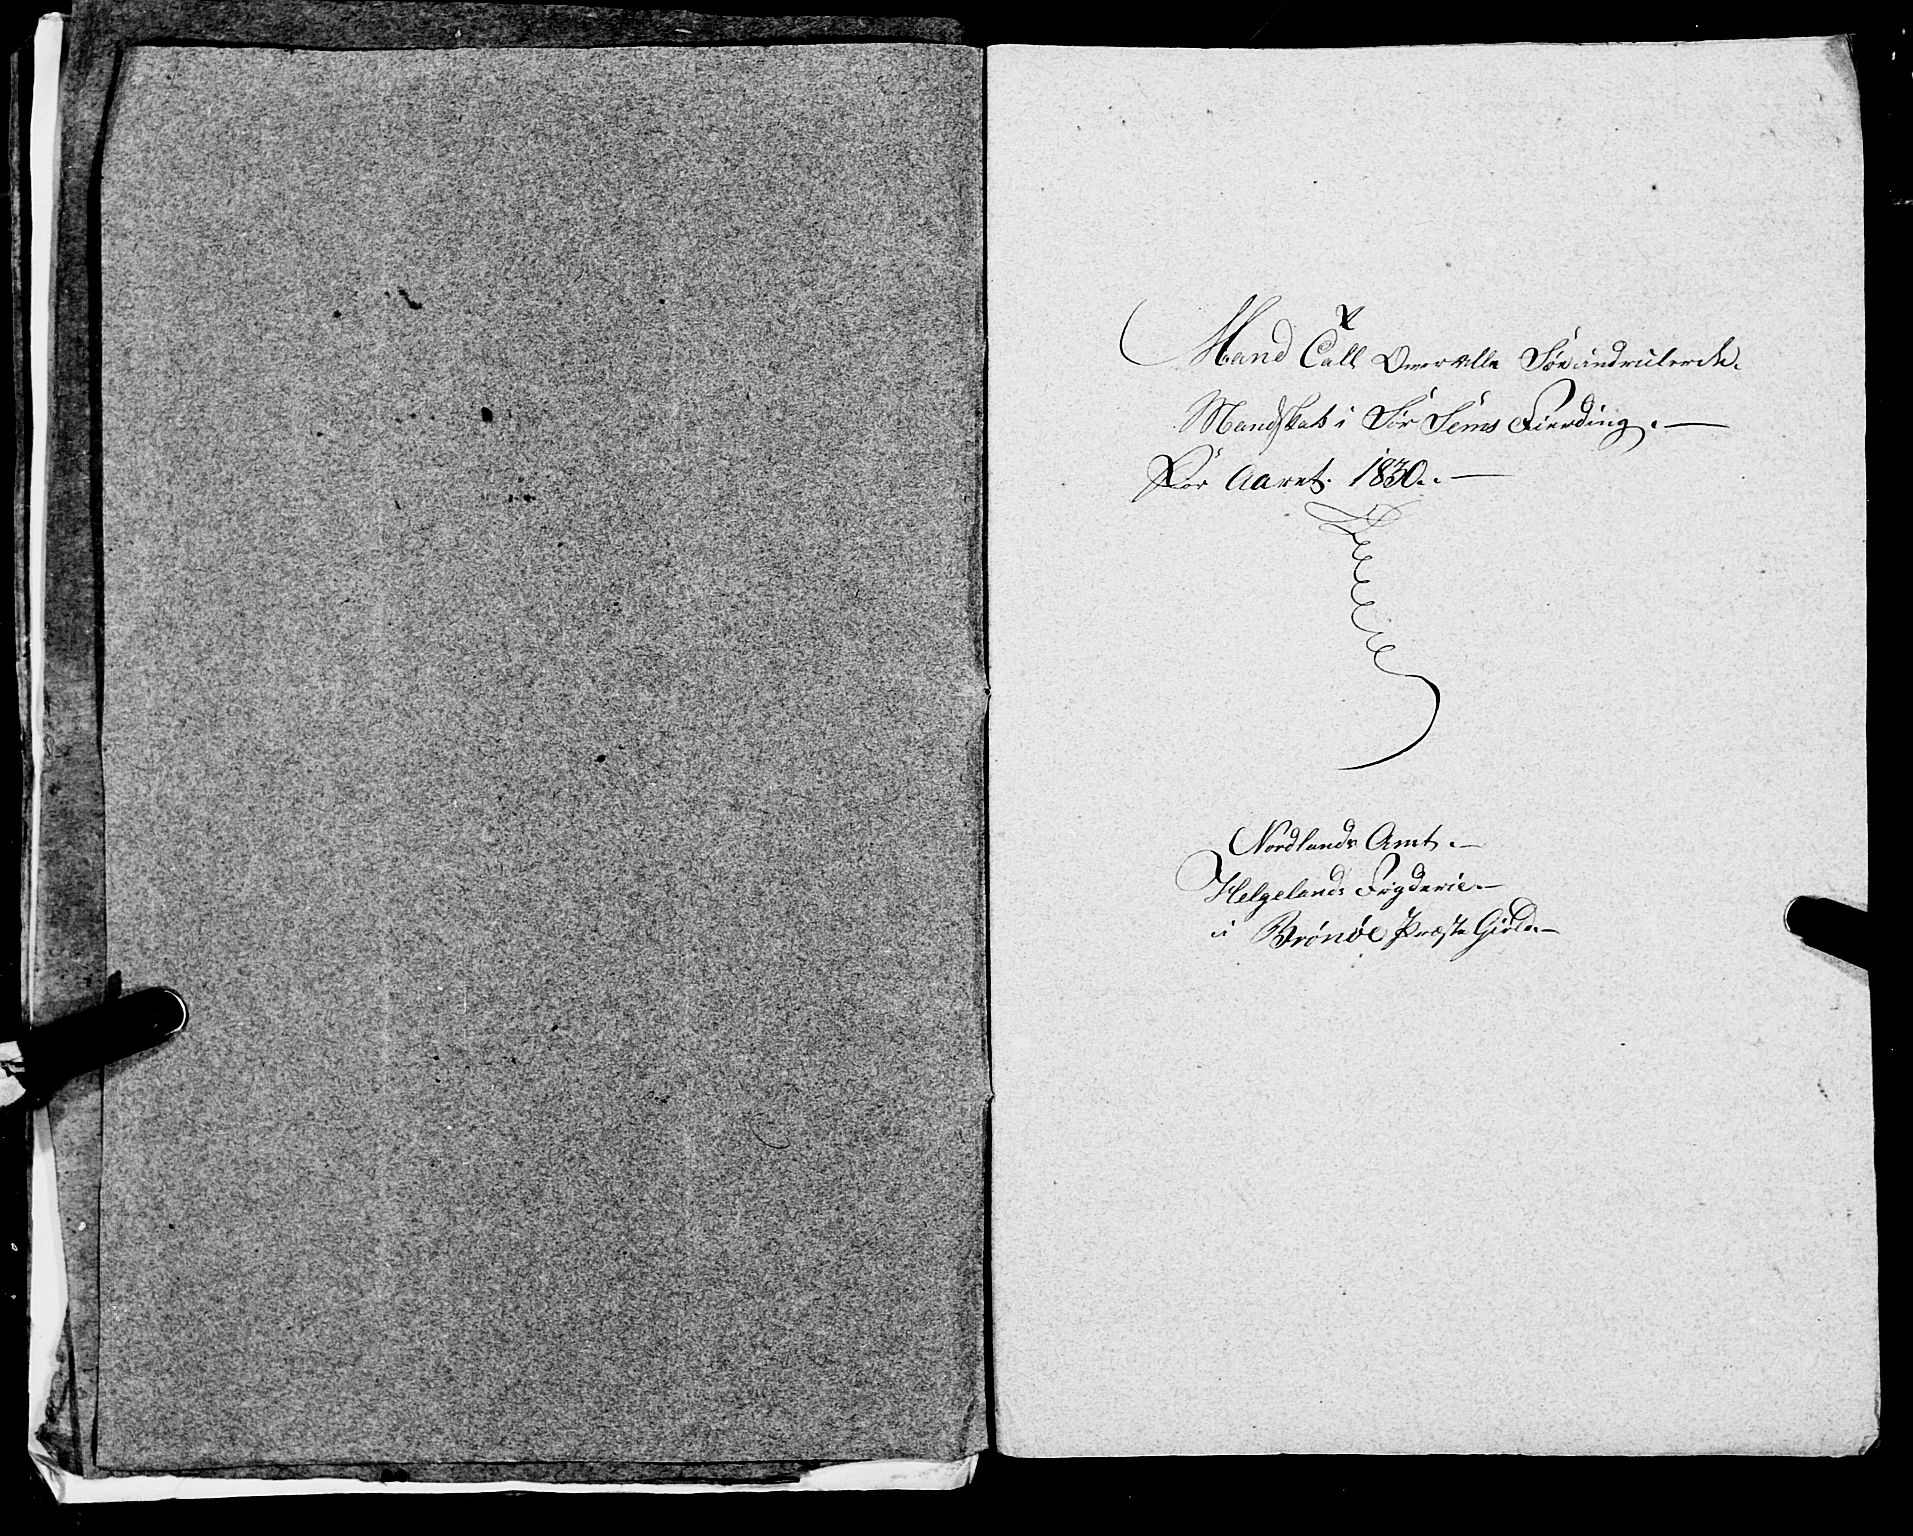 Mand Tall Over alle Søe indrulerede
Mandskab i Sør Sems Fierding. —
För Aaret. 1830.. —
Nordlands Amt. —
Helgelands Fogderie. —
i Brønøe Præste Gield. —